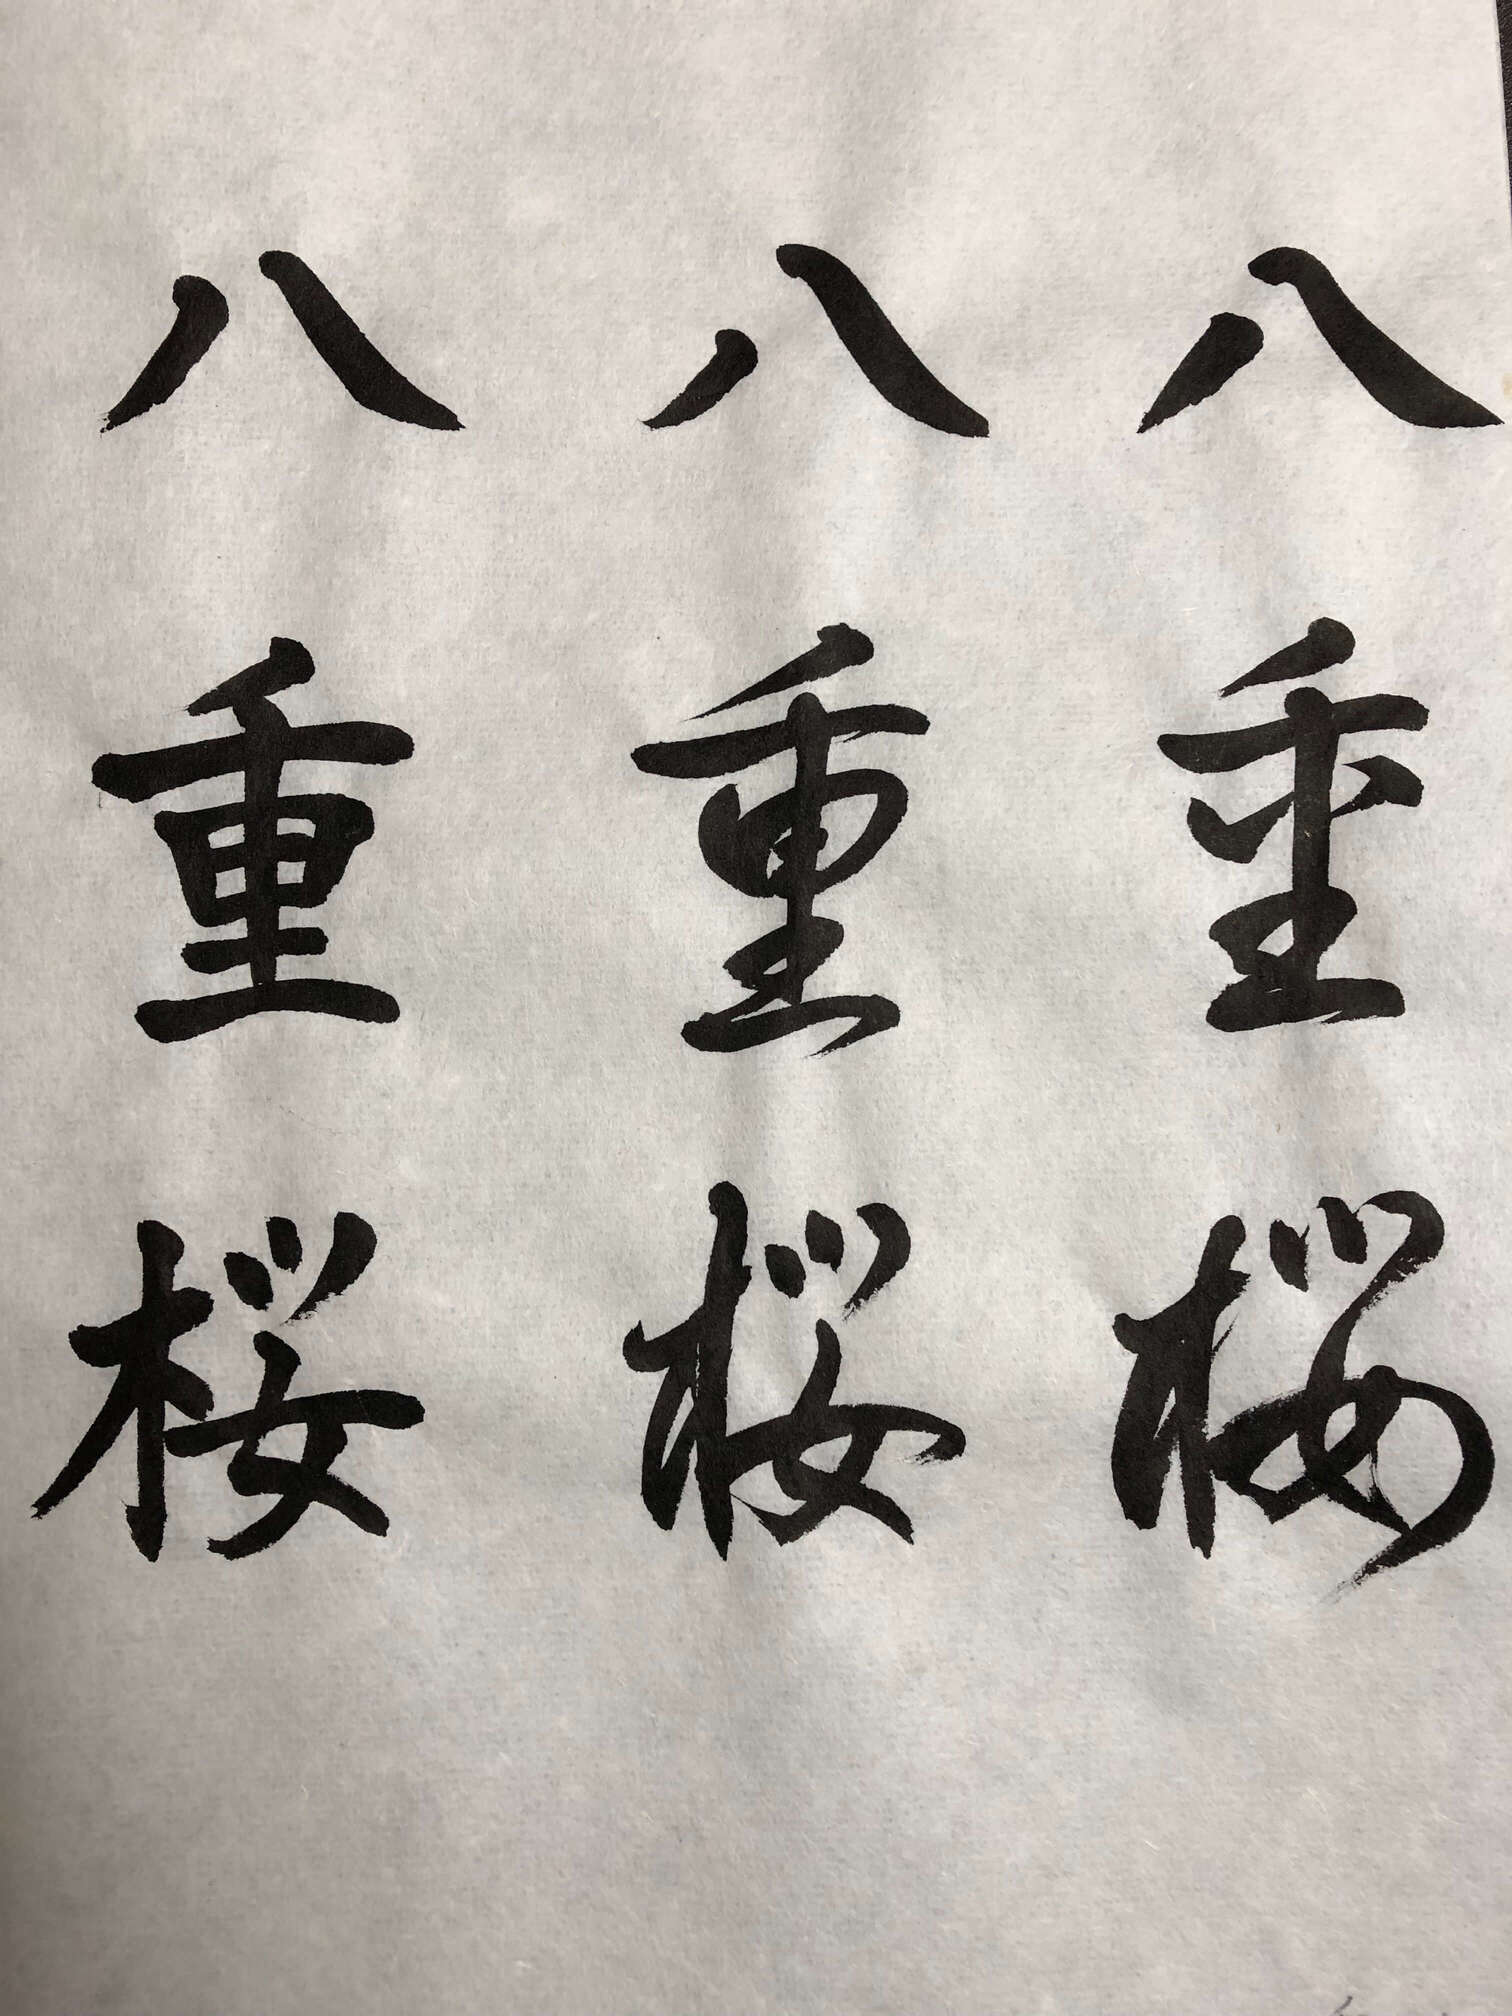 八重桜
八重桜
八重桜